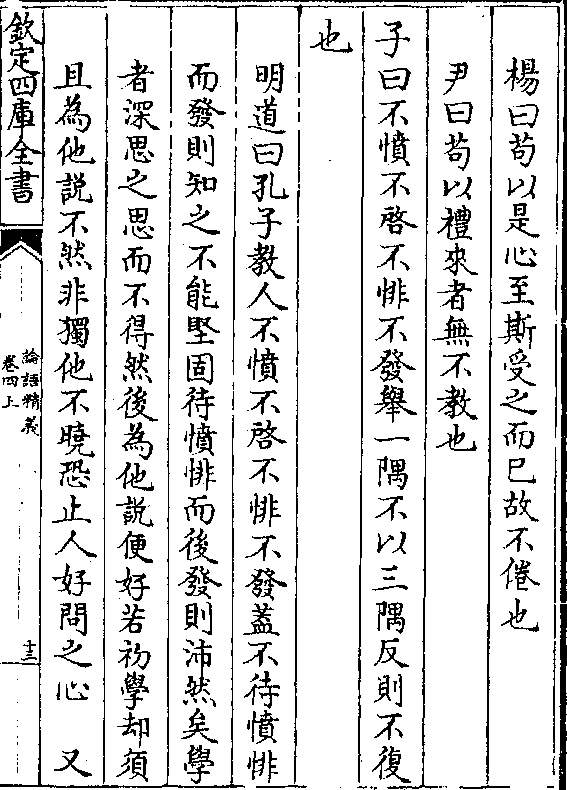 楊曰苟以是心至斯受之而已故不倦也
尹曰苟以禮來者無不教也
子曰不憤不啓不悱不發舉一隅不以三隅反則不復
也
明道曰孔子教人不憤不啓不悱不發蓋不待憤悱
而發則知之不能堅固待憤悱而後發則沛然矣學
者深思之思而不得然後為他說便好若初學却須
且為他說不然非獨他不曉恐止人好問之心　又
欽定四庫全書
論語精義
卷四上
十三